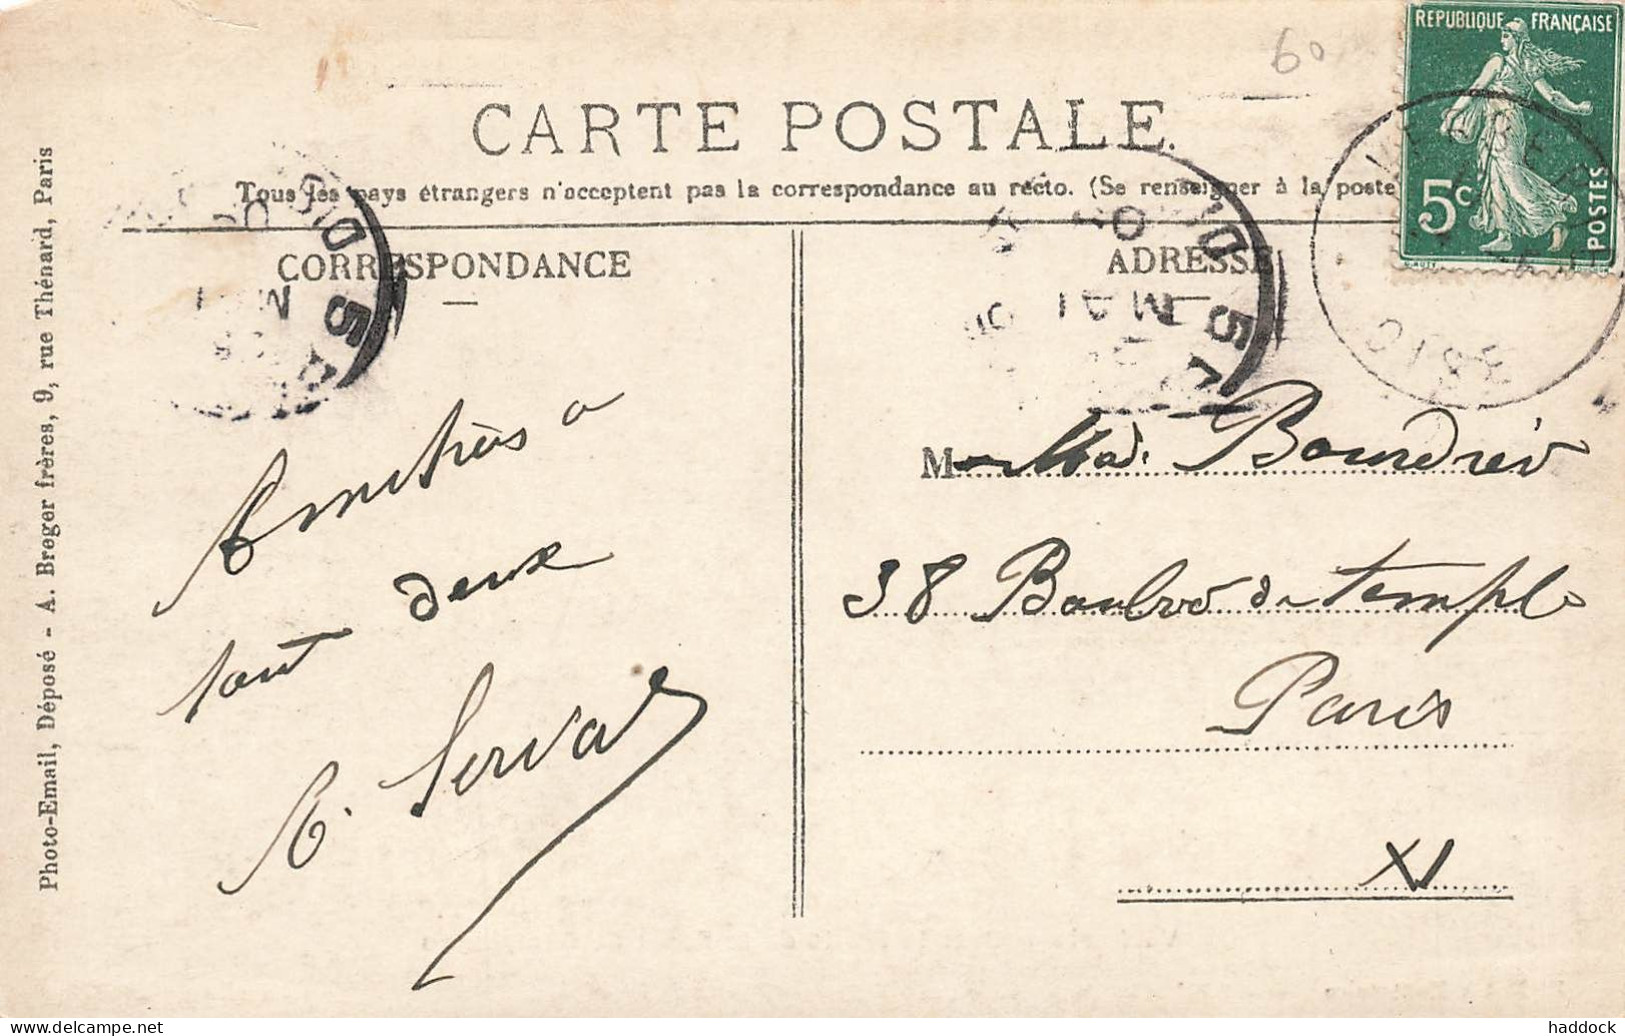 60
REPUBLIQUE FRANÇAISE
5c
POSTES
CARTE POSTALE.
Tous les pays étrangers n'acceptent pas la correspondance au recto. (Se renseigner à la poste
CORRESPONDANCE
ADRESSE
MAI
OISE
Amitiés a
tout deux
A. Servas
M Mad. Bourdrév
38 Boulvd du temple
Paris
XI
Photo-Email, Déposé - A. Breger frères, 9, rue Thénard, Paris
haddock